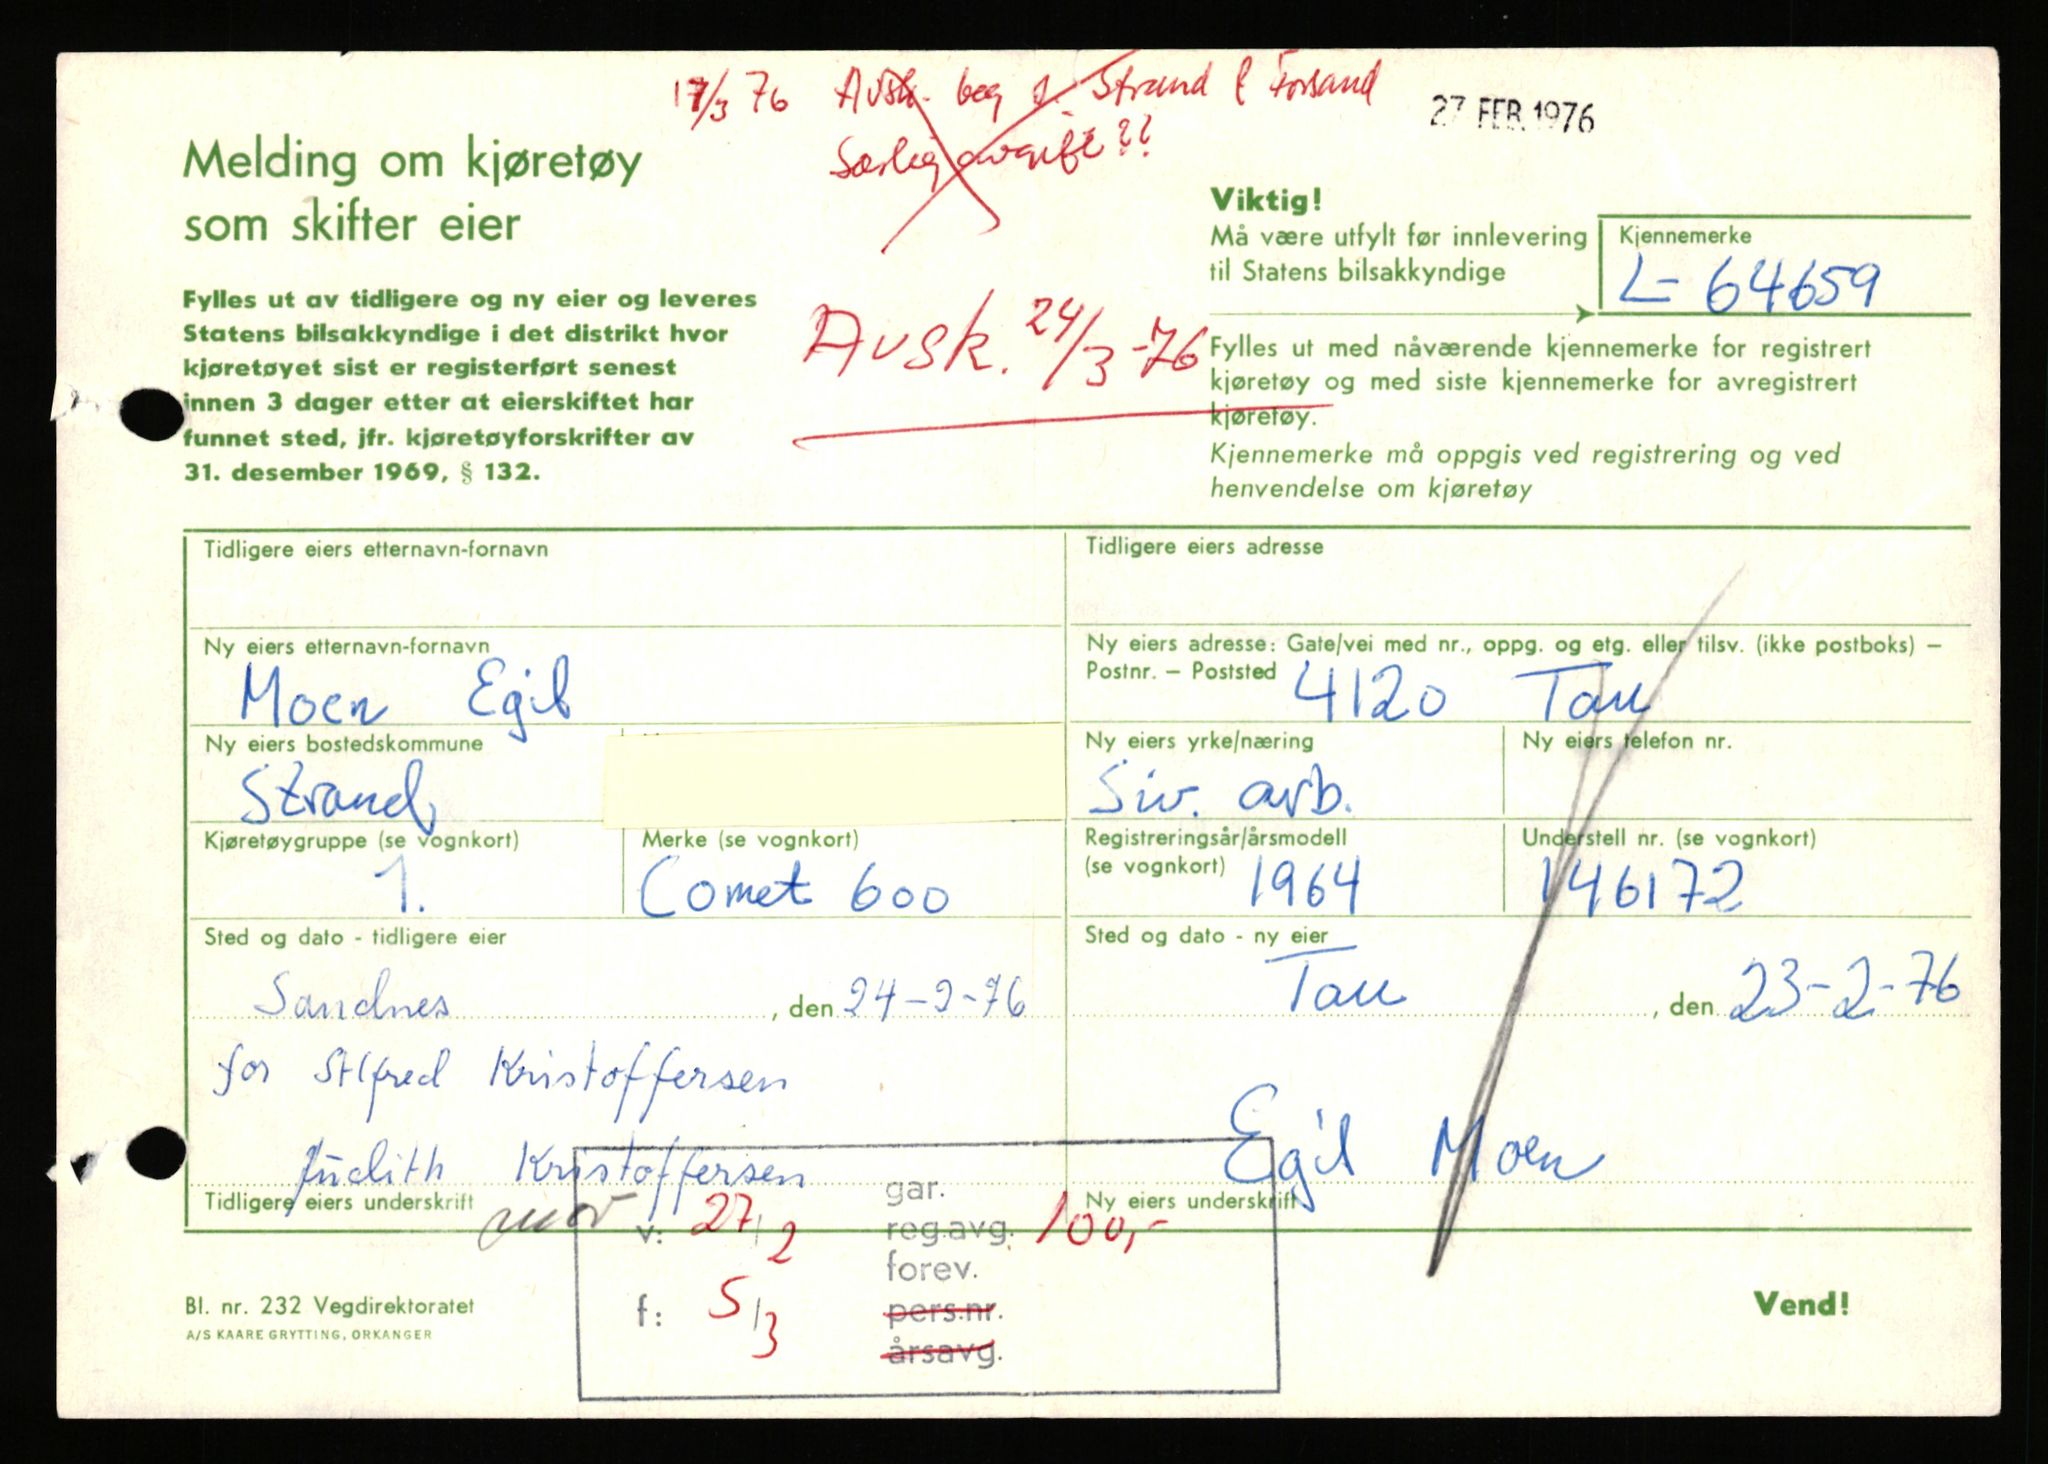 17/3 76 Avsk. beg Strand & Forsand
Særlig avgift??
27 FEB. 1976
Melding om kjøretøy
som skifter eier
Viktig!
Må være utfylt før innlevering
til Statens bilsakkyndige
Kjennemerke
L-64659
Fylles ut av tidligere og ny eier og leveres
Statens bilsakkyndige i det distrikt hvor
kjøretøyet sist er registerført senest
innen 3 dager etter at eierskiftet har
funnet sted, jfr. kjøretøyforskrifter av
31. desember 1969, § 132.
Avsk. 24/3-76
Fylles ut med nåværende kjennemerke for registrert
kjøretøy og med siste kjennemerke for avregistrert
kjøretøy.
Kjennemerke må oppgis ved registrering og ved
henvendelse om kjøretøy
Tidligere eiers etternavn-fornavn
Tidligere eiers adresse
Ny eiers etternavn-fornavn
Moen Egil
Ny eiers adresse: Gate/vei med nr., oppg. og etg. eller tilsv. (ikke postboks) –
Postnr. – Poststed 4120 Tau
Ny eiers bostedskommune
Strand
Ny eiers yrke/næring
Siv. arb.
Ny eiers telefon nr.
Kjøretøygruppe (se vognkort)
1.
Merke (se vognkort)
Comet 600
Registreringsår/årsmodell
(se vognkort) 1964
Understell nr. (se vognkort)
146172
Sted og dato - tidligere eier
Sandnes, den 24-2-76
Sted og dato - ny eier
Tau, den 23-2-76
for Alfred Kristoffersen
Judith Kristoffersen
Tidligere eiers underskrift
mor
Egil Moen
Ny eiers underskrift
v: 27/2
f: 5/3
gar.
reg.avg. 100,-
forev.
pers.nr.
årsavg.
Bl. nr. 232 Vegdirektoratet
A/S KAARE GRYTTING, ORKANGER
Vend!